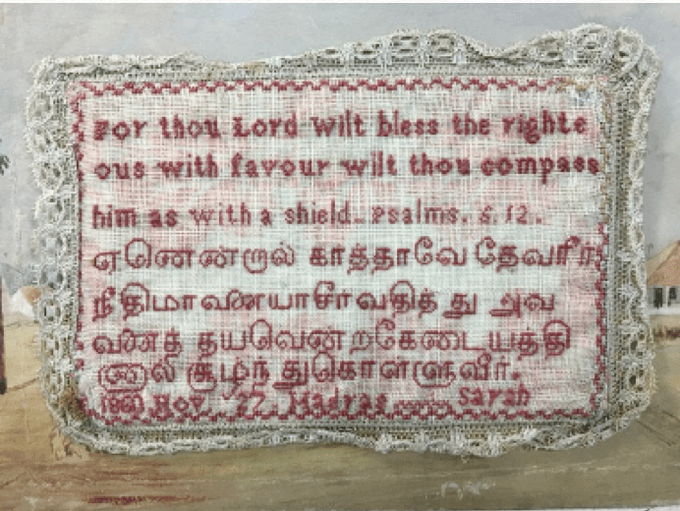 For thou Lord wilt bless the righte
ous with favour wilt thou compass
him as with a shield. Psalms. 5. 12.
ஏனென்றால் கர்த்தாவே தேவரீர்
நீதிமானையாசீர்வதித்து அவ
னைத் தயவென்றகேடையத்தி
னால் சூழந்துகொள்ளுவீர்.
Nov. 27 Madras Sarah